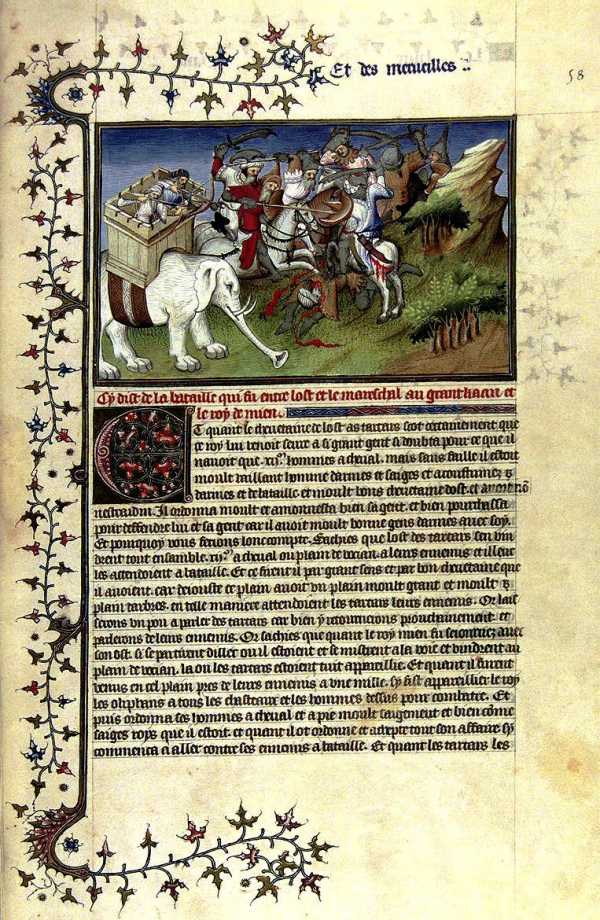 Et des merueilles
58
Cy dist de la bataille qui fu entre lost et le mareschal au grant kaan et
le roy de mien.
Et quant le cheuetaine de lost as tartars scot certainement que
ce roy lui uenoit seure a si grant gent si doubta pour ce que il
nauoit que .xij.m hommes a cheual. mais sans faille il estoit
moult uaillant homme darmes et saiges et acoustumez
darmes et de bataille et moult bons cheuetaine dost. et auoit nō
nestraidin. Il ordonna moult et amonnesta bien sa gent. et bien pourchassa
pour deffendre lui et sa gent car il auoit moult bonne gens darmes auec soy.
Et pourquoy uous feroies lonc compte. Sachies que lost des tartars sen uin
drent tout ensamble .xij.m a cheual ou plain de uocian. a leurs ennemis et illeuc
les attendoient a bataille. Et ce firent il par grant sens et par bon cheuetaine que
il auoient. car deiouste ce plain auoit un plain moult grant et moult
plain darbres. en telle maniere attendoient les tartars leurs ennemis. Or lais
serons un poi a parler des tartars car bien y retournerons prouchainement. et
parlerons de leurs ennemis. Or sachies que quant le roy mien fu seiournez auec
son ost. si se partirent dillec ou il estoient et se mistrent a la uoie et uindrent au
plain de uocian. la ou les tartars estoient tuit appareillie. Et quant il furent
uenus en cel plain pres de leurs ennemis a une mille. sy fist appareillier le roy
les oliphans a tous les chasteaux et les hommes dessus pour combatre. Et
puis ordonna ses hommes a cheual et a pie moult saigement et bien cōme
saiges roys que il estoit. et quant il ot ordonne et adrepte tout son affaire sy
commenca a aler contre ses ennemis a bataille. Et quant les tartars les